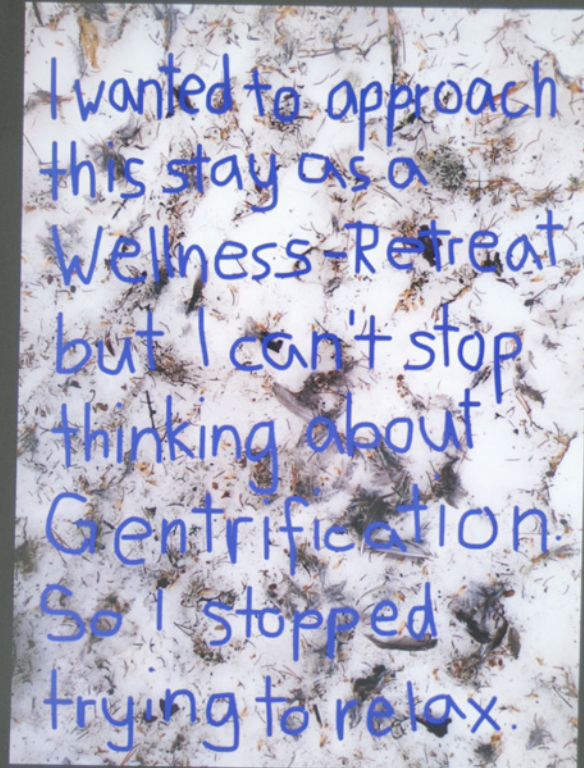 I wanted to approach
this stay as a
Wellness-Retreat
but I can't stop
thinking about
Gentrification.
So I stopped
trying to relax.